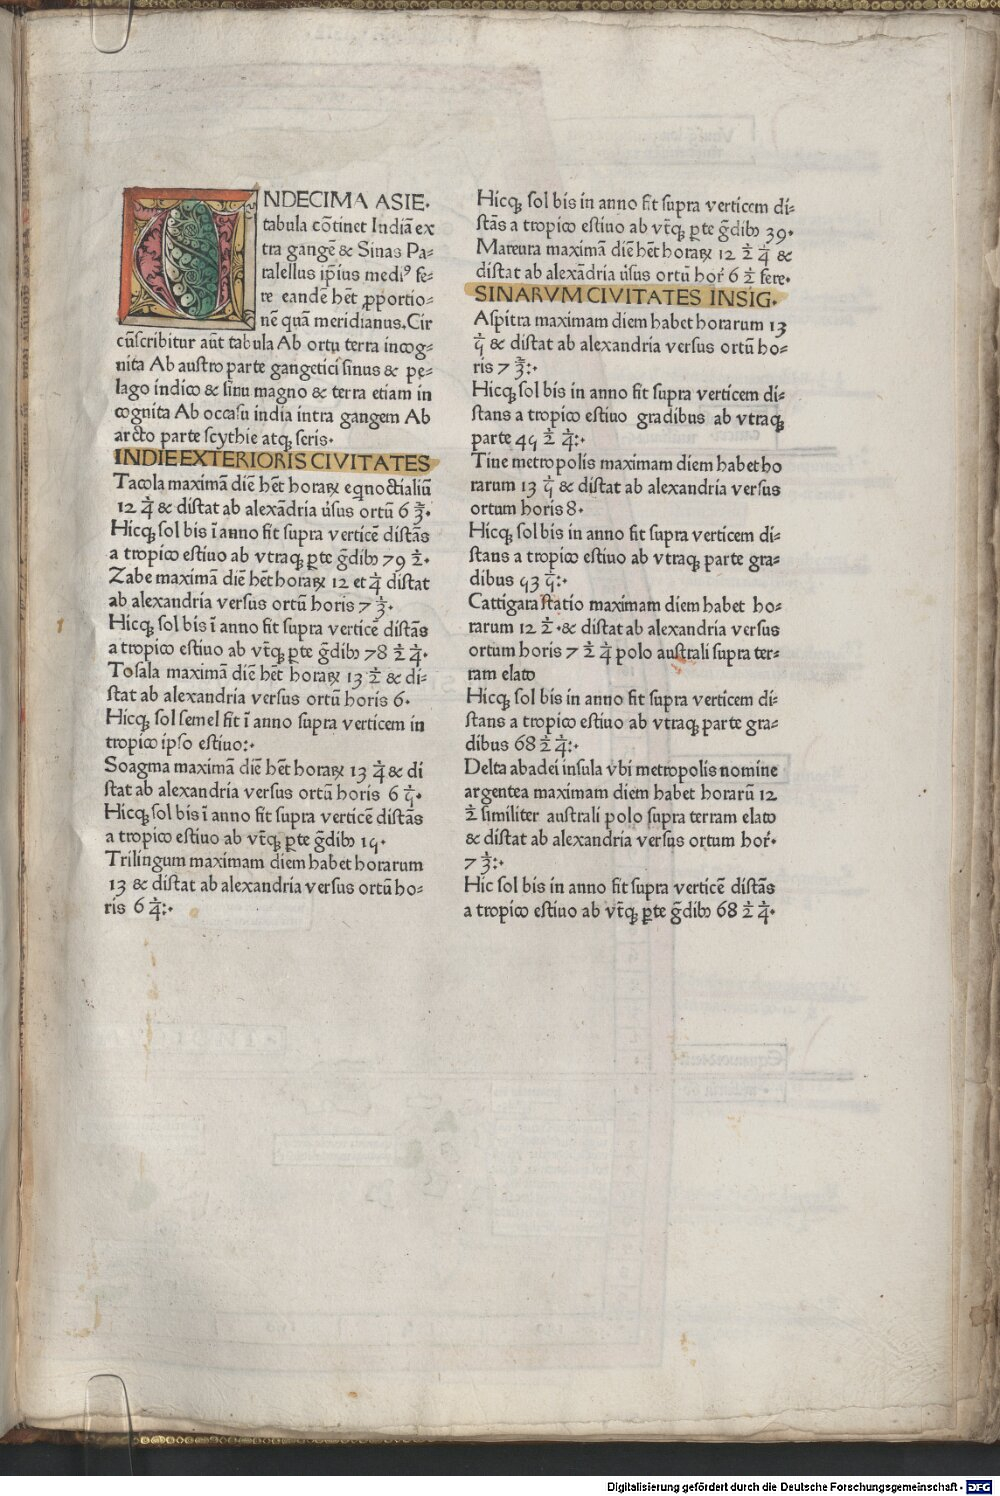 VNDECIMA ASIE.
tabula cõtinet Indiã ex
tra gangẽ & Sinas Pa-
ralellus ip̃ius mediꝰ fe-
re eandẽ hẽt ꝓportio-
nẽ quã meridianus. Cir
cũscribitur aũt tabula Ab ortu terra incog-
nita Ab austro parte gangetici sinus & pe-
lago indico & sinu magno & terra etiam in
cognita Ab occasu india intra gangem Ab
arcto parte scythie atq; seris.
INDIE EXTERIORIS CIVITATES
Tacola maximã diẽ hẽt horaꝝ eqnoctialiũ
12 1/4 & distat ab alexãdria ũsus ortũ 6 2/3.
Hicq; sol bis ĩ anno fit supra verticẽ distãs
a tropico estiuo ab vtraq; ꝑte g̃dibꝫ 79 1/2.
Zabe maximã diẽ hẽt horaꝝ 12 et 1/4 distat
ab alexandria versus ortũ horis 7 1/3.
Hicq; sol bis ĩ anno fit supra verticẽ distãs
a tropico estiuo ab vt̃q; ꝑte g̃dibꝫ 78 1/2 1/4.
Tosala maximã diẽ hẽt horaꝝ 13 1/2 & di-
stat ab alexandria versus ortũ horis 6.
Hicq; sol semel fit ĩ anno supra verticem in
tropico ipso estiuo:.
Soagma maximã diẽ hẽt horaꝝ 13 1/4 & di
stat ab alexandria versus ortũ horis 6 1/5.
Hicq; sol bis ĩ anno fit supra verticẽ distãs
a tropico estiuo ab vt̃q; ꝑte g̃dibꝫ 15.
Trilingum maximam diem habet horarum
13 & distat ab alexandria versus ortũ ho-
ris 6 1/4:.
Hicq; sol bis in anno fit supra verticem di-
stãs a tropico estiuo ab vt̃q; ꝑte g̃dibꝫ 39.
Mareura maximã diẽ hẽt horaꝝ 12 1/2 1/4 &
distat ab alexãdria ũsus ortũ hor̃ 6 1/2 fere.
SINARVM CIVITATES INSIG.
Aspitra maximam diem habet horarum 13
1/5 & distat ab alexandria versus ortũ ho-
ris 7 2/3:.
Hicq; sol bis in anno fit supra verticem di-
stans a tropico estiuo gradibus ab vtraq;
parte 45 1/2 1/4:.
Tine metropolis maximam diem habet ho
rarum 13 1/5 & distat ab alexandria versus
ortum horis 8.
Hicq; sol bis in anno fit supra verticem di-
stans a tropico estiuo ab vtraq; parte gra-
dibus 53 1/5:.
Cattigara statio maximam diem habet ho-
rarum 12 1/2 .& distat ab alexandria versus
ortum horis 7 1/2 1/4 polo australi supra ter-
ram elato
Hicq; sol bis in anno fit supra verticem di-
stans a tropico estiuo ab vtraq; parte gra-
dibus 68 1/2 1/4:.
Delta abadei insula vbi metropolis nomine
argentea maximam diem habet horarũ 12
1/2 similiter australi polo supra terram elato
& distat ab alexandria versus ortum hor̃.
7 1/3:.
Hic sol bis in anno fit supra verticẽ distãs
a tropico estiuo ab vt̃q; ꝑte g̃dibꝫ 68 1/2 1/4.
Digitalisierung gefördert durch die Deutsche Forschungsgemeinschaft - DFG